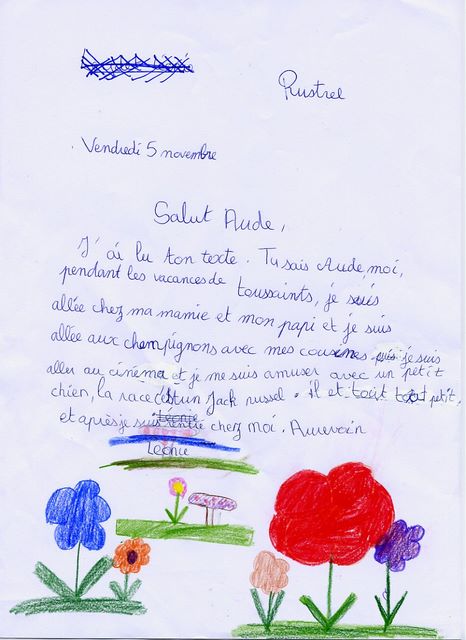 Rustrel
Vendredi 5 novembre
Salut Aude,
J'ai lu ton texte. Tu sais Aude moi,
pendant les vacances de toussaints, je suis
allée chez ma mamie et mon papi et je suis
allée aux champignons avec mes cousines puis je suis
aller au cinéma et je me suis amuser avec un petit
chien, la race c'est un Jack russel. il et tout tout petit,
et après je suis rentré chez moi. Aurevoir
Léonie